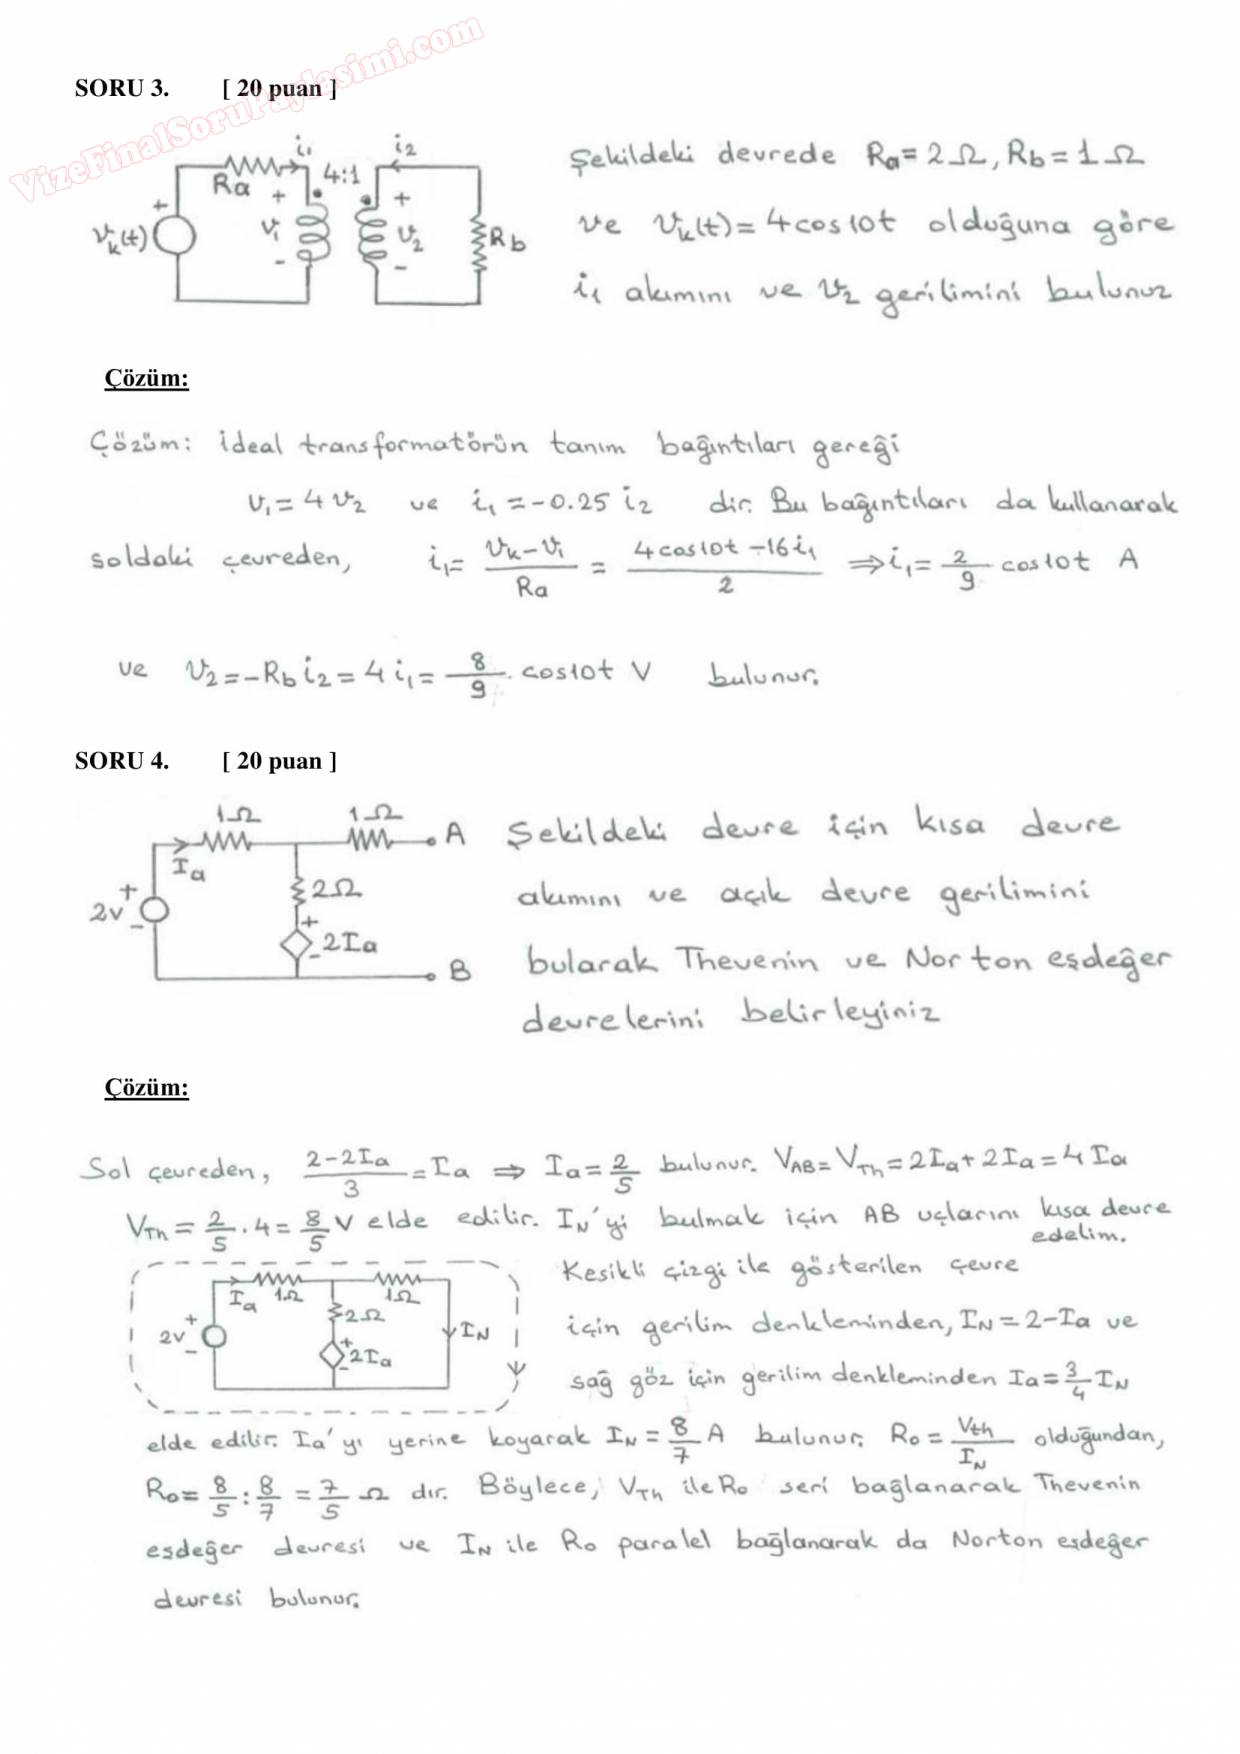 VizeFinalSoruPaylasimi.com
SORU 3. [ 20 puan ]
i₁ i₂
Ra 4:1
+ + +
vk(t) v₁ v₂ Rb
- -
Şekildeki devrede Ra=2Ω, Rb=1Ω
ve vk(t)=4cos10t olduğuna göre
i₁ akımını ve v₂ gerilimini bulunuz
Çözüm:
Çözüm: ideal transformatörün tanım bağıntıları gereği
v₁=4v₂ ve i₁=-0.25 i₂ dir. Bu bağıntıları da kullanarak
soldaki çevreden, i₁= (vk-v₁)/Ra = (4cos10t-16i₁)/2 ⇒ i₁= 2/9 cos10t A
ve v₂=-Rb i₂=4i₁= 8/9 cos10t V bulunur.
SORU 4. [ 20 puan ]
1Ω 1Ω
A
Ia
+ 2Ω
2v +
- - 2Ia
B
Şekildeki devre için kısa devre
akımını ve açık devre gerilimini
bularak Thevenin ve Norton eşdeğer
devrelerini belirleyiniz
Çözüm:
Sol çevreden, (2-2Ia)/3 = Ia ⇒ Ia= 2/5 bulunur. VAB=VTh=2Ia+2Ia=4Ia
VTh= 2/5 . 4= 8/5 V elde edilir. IN'yi bulmak için AB uçlarını kısa devre
edelim.
Ia 1Ω 1Ω
+ 2Ω IN
2v +
- - 2Ia
Kesikli çizgi ile gösterilen çevre
için gerilim denkleminden, IN=2-Ia ve
sağ göz için gerilim denkleminden Ia= 3/4 IN
elde edilir. Ia'yı yerine koyarak IN= 8/7 A bulunur. Ro= Vth/IN olduğundan,
Ro= 8/5 : 8/7 = 7/5 Ω dır. Böylece, VTh ile Ro seri bağlanarak Thevenin
eşdeğer devresi ve IN ile Ro paralel bağlanarak da Norton eşdeğer
devresi bulunur.